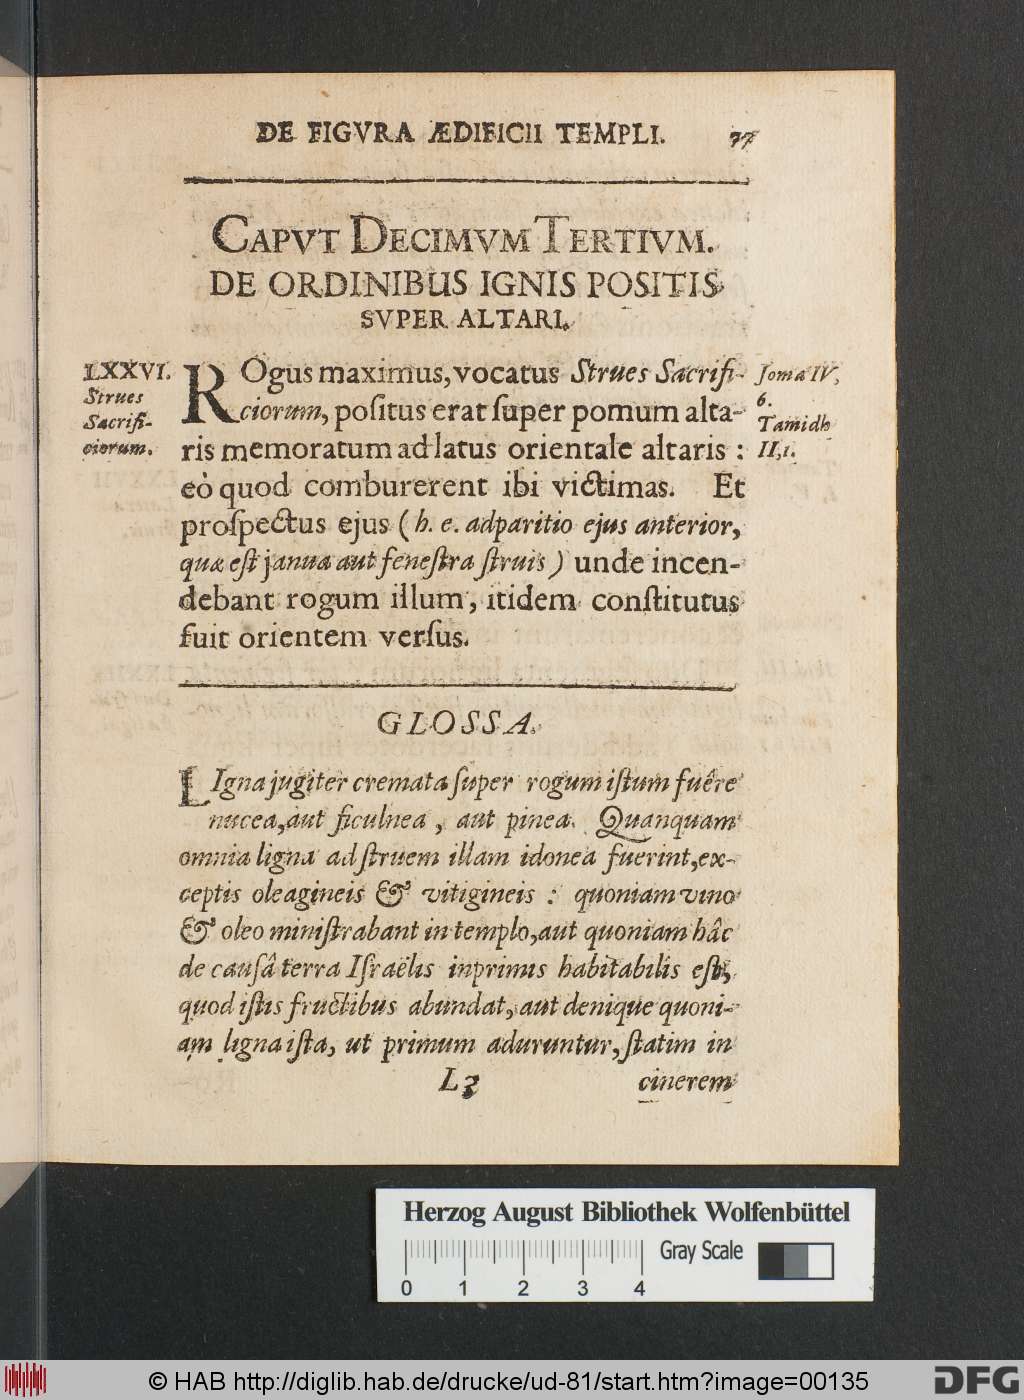 DE FIGVRA ÆDIFICII TEMPLI. 77
CAPVT DECIMVM TERTIVM.
DE ORDINIBUS IGNIS POSITIS
SVPER ALTARI.
LXXVI.
Strues
Sacrifi-
ciorum.
ROgus maximus, vocatus Strues Sacrifi-
ciorum, poſitus erat ſuper pomum alta-
ris memoratum ad latus orientale altaris :
eò quod comburerent ibi victimas. Et
proſpectus ejus ( h. e. adparitio ejus anterior,
quæ eſt janua aut feneſtra ſtruis ) unde incen-
debant rogum illum, itidem conſtitutus
fuit orientem verſus.
Joma IV,
6.
Tamidh
II,1.
GLOSSA.
LIgna jugiter cremata ſuper rogum iſtum fuêre
nucea, aut ficulnea, aut pinea. Quanquam
omnia ligna ad ſtruem illam idonea fuerint, ex-
ceptis oleagineis & vitigineis : quoniam vino
& oleo miniſtrabant in templo, aut quoniam hâc
de cauſâ terra Iſraëlis inprimis habitabilis eſt,
quod iſtis fructibus abundat, aut denique quoni-
am ligna iſta, ut primum aduruntur, ſtatim in
L3 cinerem
Herzog August Bibliothek Wolfenbüttel
Gray Scale
0 1 2 3 4
© HAB http://diglib.hab.de/drucke/ud-81/start.htm?image=00135
DFG